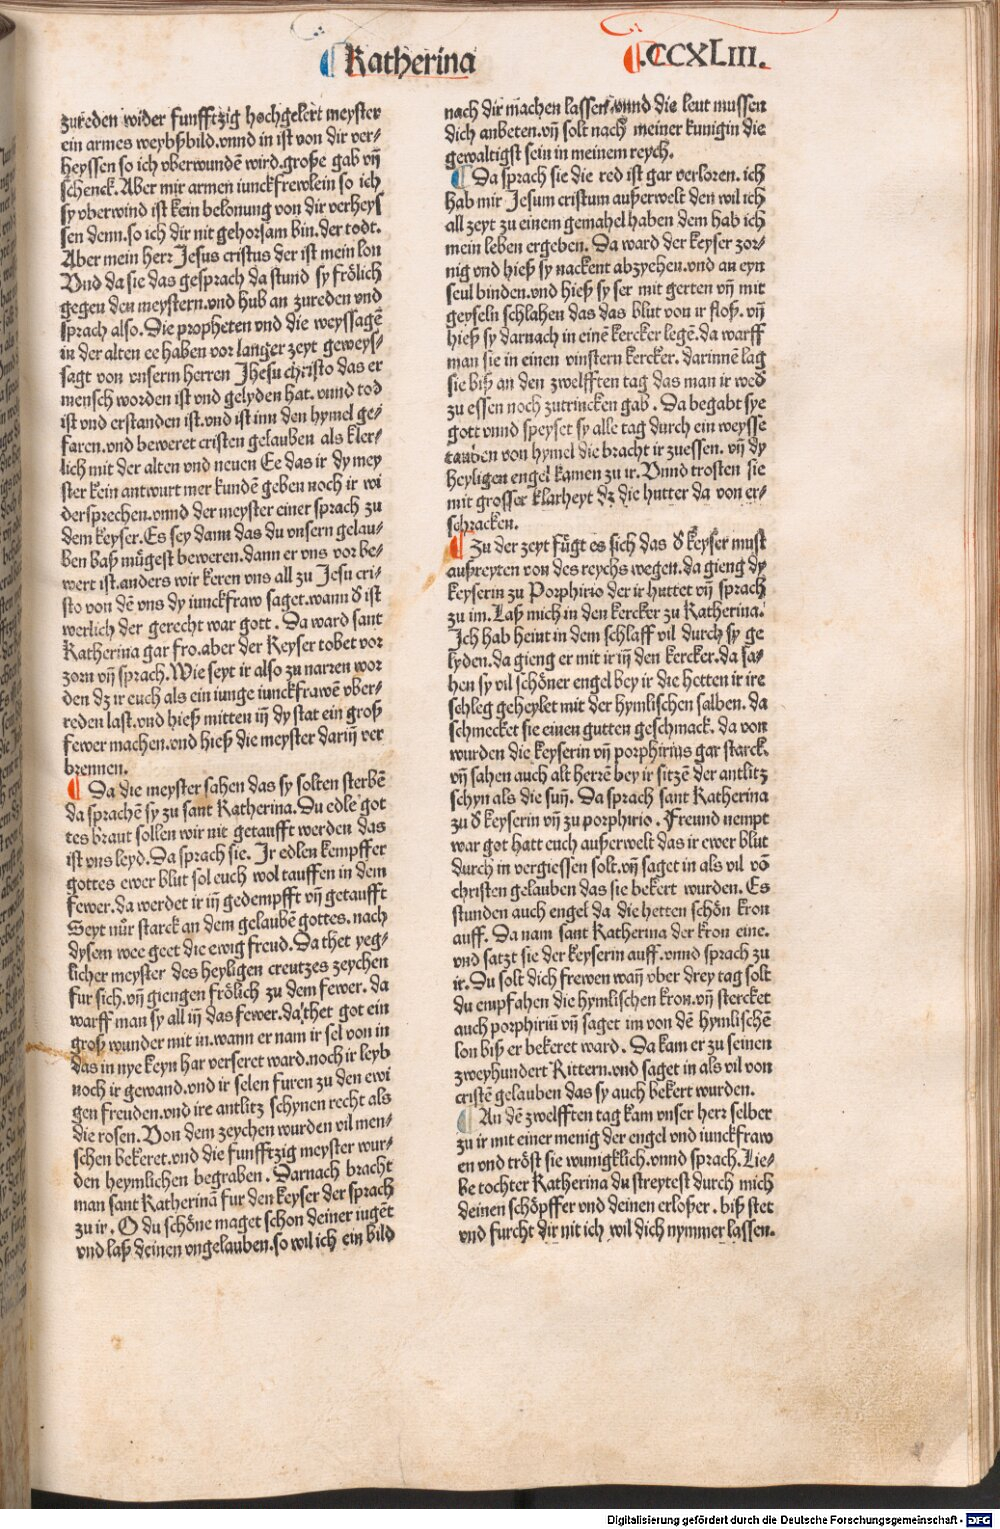 Katherina
.CCXLIII.
zureden wider funfftzig hochgelert meyster
ein armes weybßbild.vnnd in ist von dir ver-
heyssen so ich vberwundē wird.große gab vñ
schenck.Aber mir armen iunckfrewlein so ich
sy vberwind ist kein belonung von dir verheys
sen denn.so ich dir nit gehorsam bin.der todt.
Aber mein herr Jesus cristus der ist mein lon
Vnd da sie das gesprach da stund sy frölich
gegen den meystern.vnd hub an zureden vnd
sprach also.Die propheten vnd die weyssagē
in der alten ee haben vor langer zeyt geweys-
sagt von vnserm herren Jhesu christo das er
mensch worden ist vnd gelyden hat.vnnd tod
ist vnd erstanden ist.vnd ist inn den hymel ge-
faren.vnd beweret cristen gelauben als kler-
lich mit der alten vnd neuen Ee das ir dy mey
ster kein antwurt mer kundē geben noch ir wi
dersprechen.vnnd der meyster einer sprach zu
dem keyser.Es sey dann das du vnsern gelau-
ben baß mügest beweren.dann er vns vor be-
wert ist.anders wir keren vns all zu Jesu cri-
sto von dē vns dy iunckfraw saget.wann d̕ ist
werlich der gerecht war gott . Da ward sant
Katherina gar fro.aber der Keyser tobet vor
zorn vñ sprach.Wie seyt ir also zu narren wor
den dz ir euch als ein iunge iunckfrawē vber-
reden last.vnd hieß mitten iñ dy stat ein groß
fewer machen.vnd hieß die meyster dariñ ver
brennen.
¶ Da die meyster sahen das sy solten sterbē
da sprachē sy zu sant Katherina.Du edle got
tes braut sollen wir nit getaufft werden das
ist vns leyd.Da sprach sie. Ir edlen kempffer
gottes ewer blut sol euch wol tauffen in dem
fewer.da werdet ir iñ gedempfft vñ getaufft
Seyt nůr starck an dem gelaubē gottes.nach
dysem wee geet die ewig freud.Da thet yeg-
licher meyster des heyligen creutzes zeychen
fur sich.vñ giengen frölich zu dem fewer. da
warff man sy all iñ das fewer.da thet got ein
groß wunder mit in.wann er nam ir sel von in
das in nye keyn har verseret ward.noch ir leyb
noch ir gewand.vnd ir selen furen zu den ewi
gen freuden.vnd ire antlitz schynen recht als
die rosen. Von dem zeychen wurden vil men-
schen bekeret.vnd die funfftzig meyster wur-
den heymlichen begraben . Darnach bracht
man sant Katherinā fur den keyser der sprach
zu ir . O du schöne maget schon deiner iugēt
vnd laß deinen vngelauben.so wil ich ein bild
nach dir machen lassen.vnnd die leut mussen
dich anbeten.vñ solt nach meiner kunigin die
gewaltigst sein in meinem reych.
¶ Da sprach sie die red ist gar verloren. ich
hab mir Jesum cristum außerwelt den wil ich
all zeyt zu einem gemahel haben dem hab ich
mein leben ergeben. Da ward der keyser zor-
nig vnd hieß sy nackent abzyehen.vnd an eyn
seul binden.vnd hieß sy ser mit gerten vñ mit
geyseln schlahen das das blut von ir floß. vñ
hieß sy darnach in einē kercker legē.da warff
man sie in einen vinstern kercker. darinnē lag
sie biß an den zwelfften tag das man ir wed̕
zu essen noch zutrincken gab . Da begabt sye
gott vnnd speyset sy alle tag durch ein weysse
tauben von hymel die bracht ir zuessen. vñ dy
heyligen engel kamen zu ir. Vnnd trosten sie
mit grosser klarheyt dz die hutter da von er-
schracken.
¶ Zu der zeyt fügt es sich das d̕ keyser must
außreyten von des reychs wegen.da gieng dy
keyserin zu Porphirio der ir huttet vñ sprach
zu im. Laß mich in den kercker zu Katherina.
Ich hab heint in dem schlaff vil durch sy ge
lyden.da gieng er mit ir iñ den kercker.da sa-
hen sy vil schöner engel bey ir die hetten ir ire
schleg geheylet mit der hymlischen salben. da
schmecket sie einen gutten geschmack. da von
wurden die keyserin vñ porphirius gar starck.
vñ sahen auch alt herrē bey ir sitzē der antlitz
schyn als die suñ. Da sprach sant Katherina
zu d̕ keyserin vñ zu porphirio . Freund nempt
war got hatt euch außerwelt das ir ewer blut
durch in vergiessen solt.vñ saget in als vil vō
christen gelauben das sie bekert wurden. Es
stunden auch engel da die hetten schön kron
auff. Da nam sant Katherina der kron eine.
vnd satzt sie der keyserin auff.vnnd sprach zu
ir. Du solt dich frewen wañ vber drey tag solt
du empfahen die hymlischen kron.vñ stercket
auch porphiriū vñ saget im von dē hymlischē
lon biß er bekeret ward . Da kam er zu seinen
zweyhundert Rittern.vnd saget in als vil von
cristē gelauben das sy auch bekert wurden.
¶ An dē zwelfften tag kam vnser herr selber
zu ir mit einer menig der engel vnd iunckfraw
en vnd tröst sie wunigklich.vnnd sprach. Lie-
be tochter Katherina du streytest durch mich
deinen schöpffer vnd deinen erloßer . biß stet
vnd furcht dir nit ich wil dich nymmer lassen.
Digitalisierung gefördert durch die Deutsche Forschungsgemeinschaft - DFG